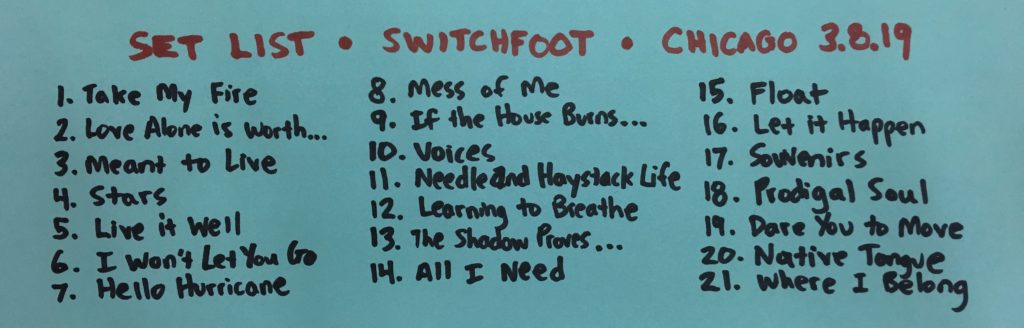 SET LIST • SWITCHFOOT • CHICAGO 3.8.19
1. Take My Fire
2. Love Alone is Worth...
3. Meant to Live
4. Stars
5. Live it Well
6. I Won't Let You Go
7. Hello Hurricane
8. Mess of Me
9. If the House Burns...
10. Voices
11. Needle and Haystack Life
12. Learning to Breathe
13. The Shadow Proves...
14. All I Need
15. Float
16. Let it Happen
17. Souvenirs
18. Prodigal Soul
19. Dare You to Move
20. Native Tongue
21. Where I Belong